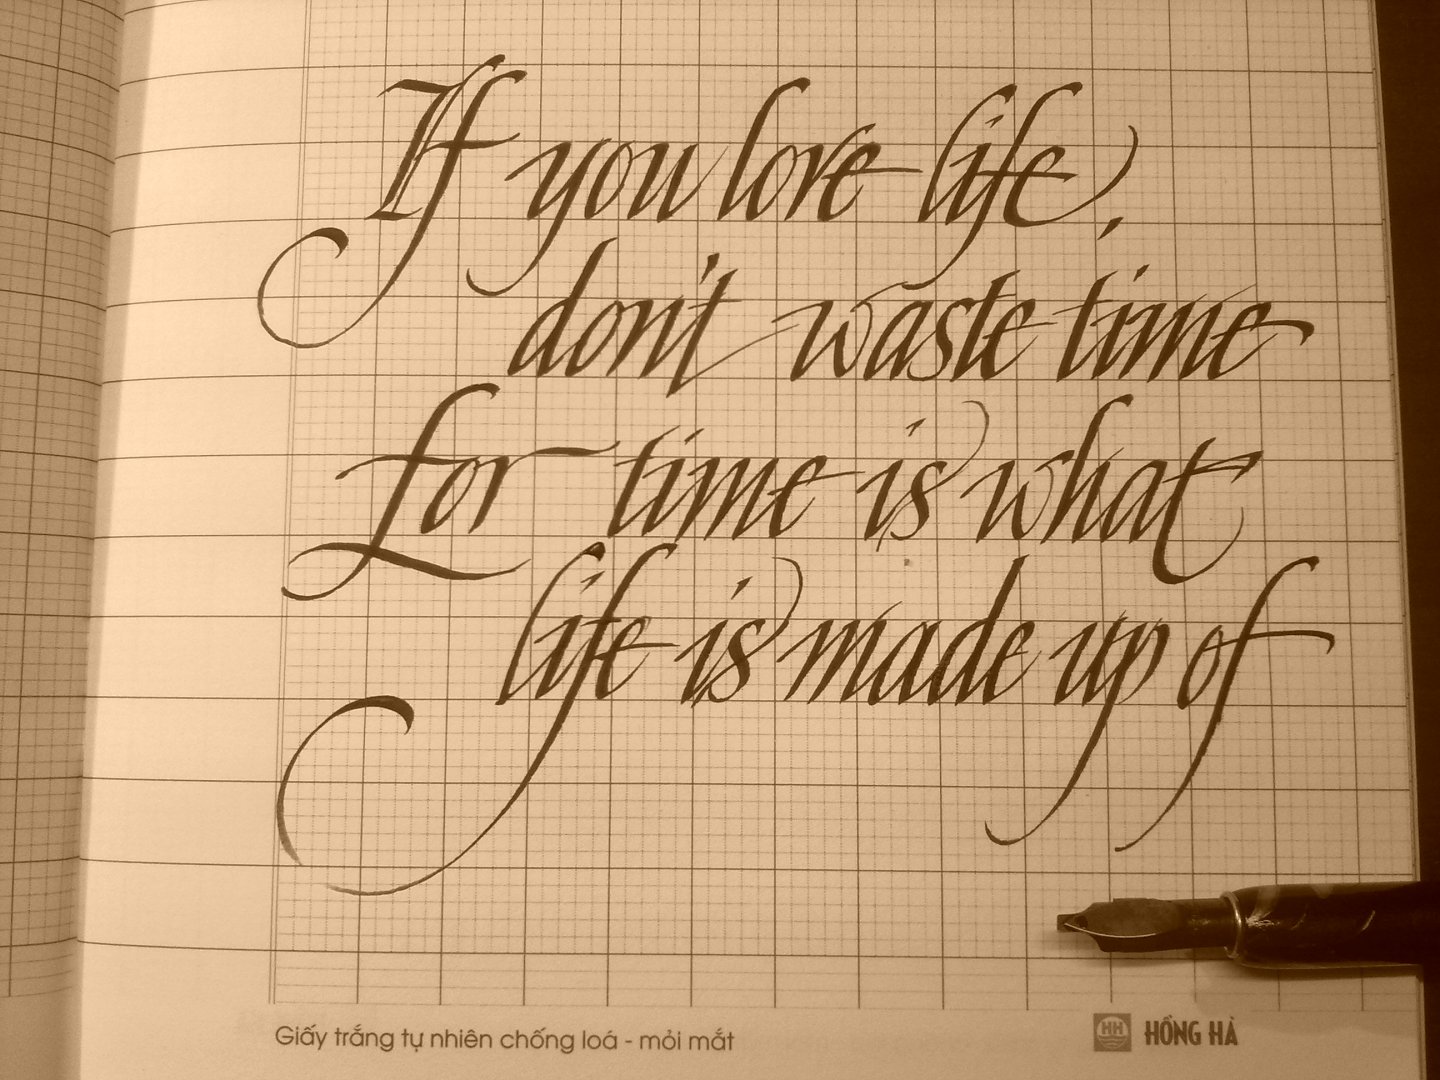 If you love life,
don't waste time
for time is what
life is made up of
Giấy trắng tự nhiên chống loá - mỏi mắt
HH HỒNG HÀ